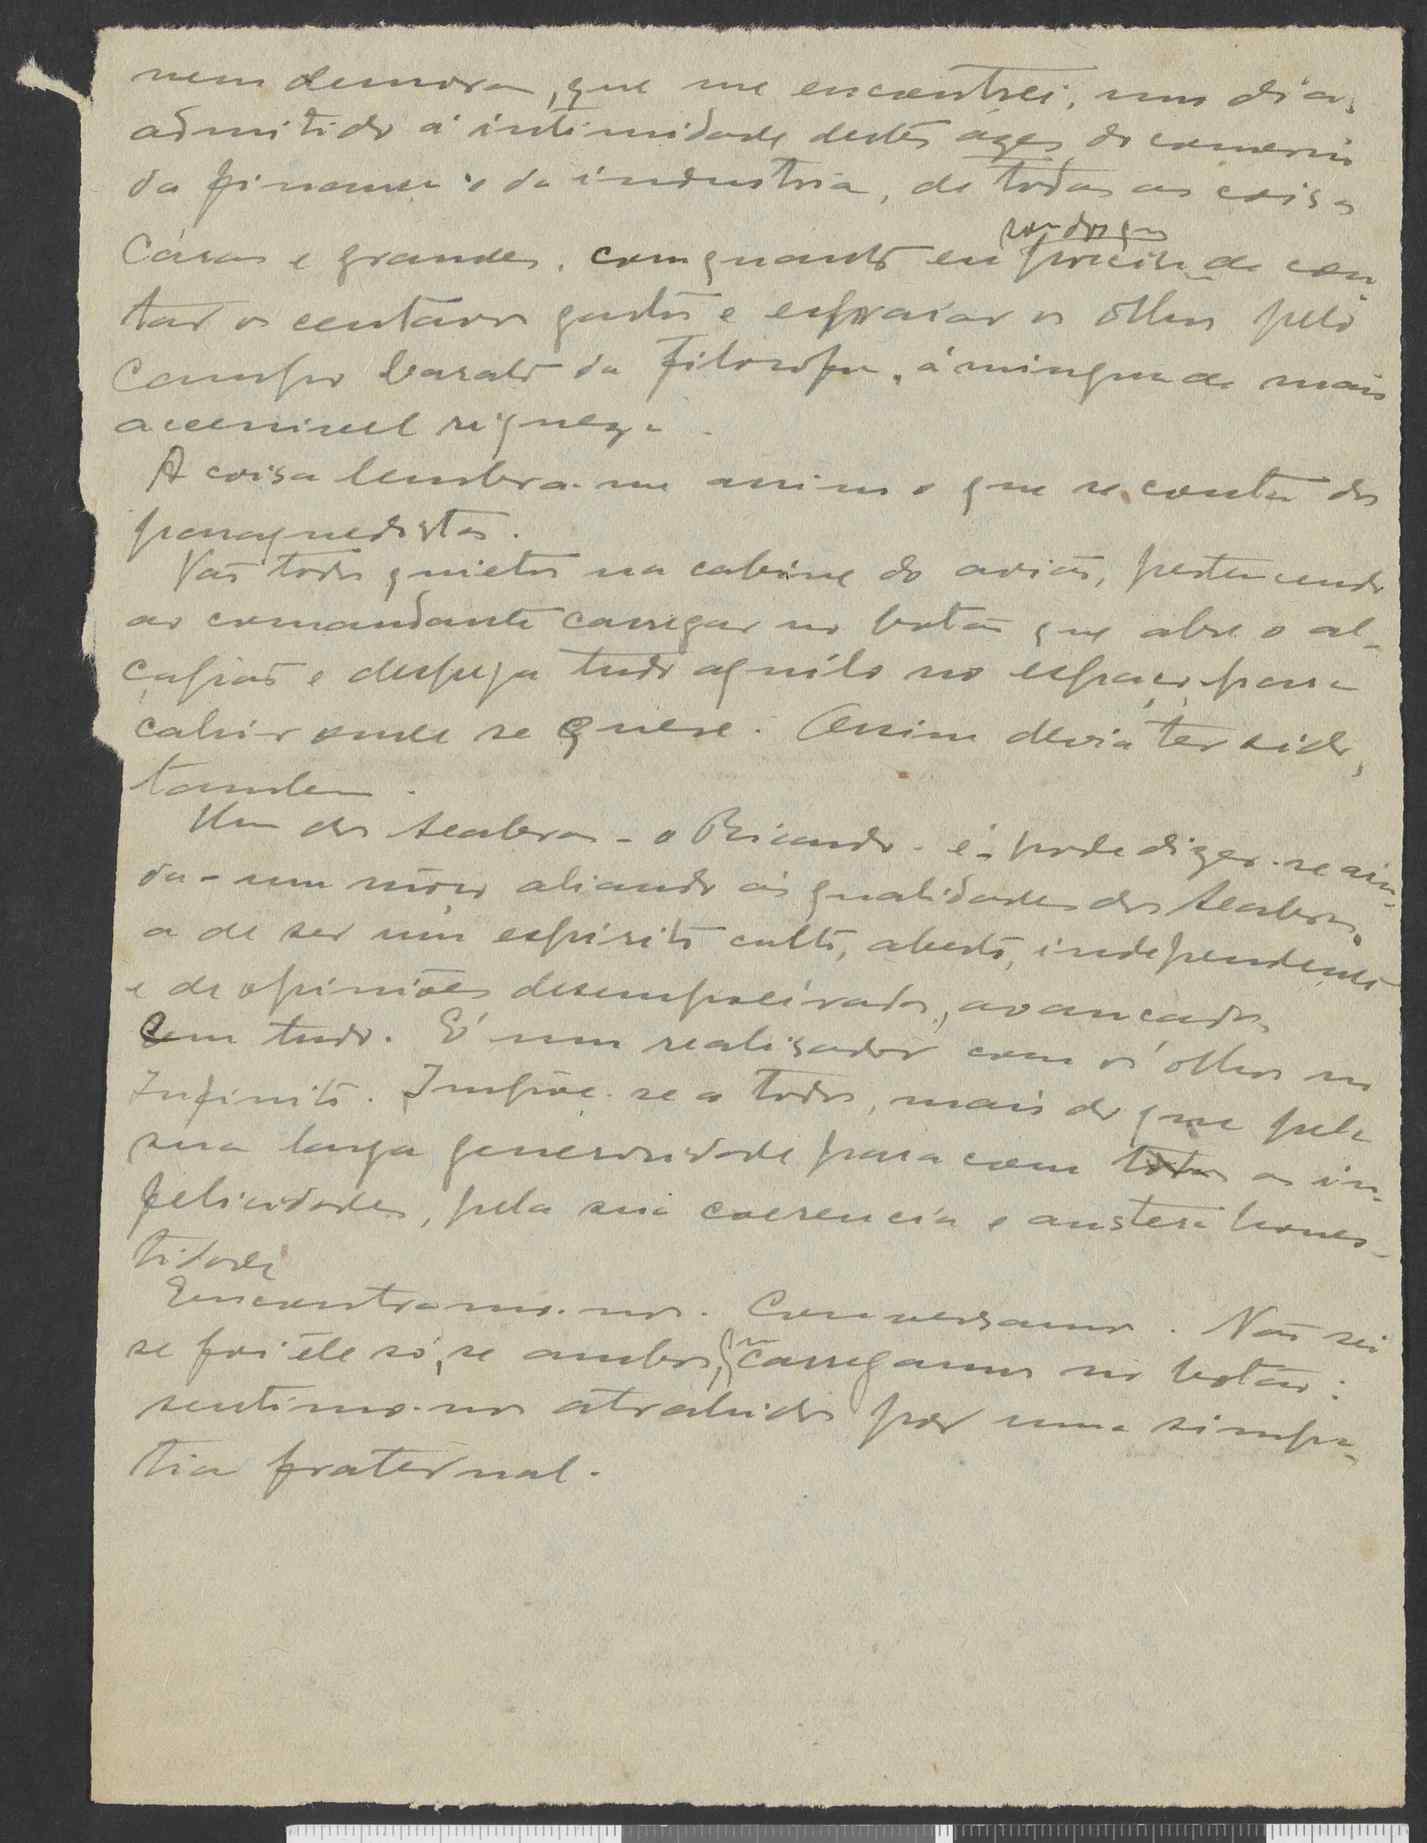 nem demora, que me encontrei, um dia,
admitido á intimidade destes azes do comercio
da finança e da industria, de todas as coisas
sou dos que
Caras e grandes, comquanto eu precise de con-
tar os centavos gastos e espraiar os olhos pelo
campo barato da Filosofia, á mingua de mais
accessivel riqueza.
A coisa lembra-me assim o que se conta dos
paraquedistas.
Vão todos quietos na cabine do avião, pertencendo
ao comandante carregar no botão que abre o al-
çapão e despeja tudo aquilo no espaço, para
cahir onde se quere. Assim devia ter sido,
tambem.
Um dos Seabras - o Ricardo - é - pode dizer-se ain-
da - um môço aliando ás qualidades dos Seabras,
a de ser um espirito culto, aberto, independente
e de opiniões desempoeiradas, avançadas
em tudo. É um realisador com os olhos no
Infinito. Impõe-se a todos, mais do que pela
sua larga generosidade para com todas as in-
felicidades, pela sua coerencia e austera hones-
tidade
Encontramo-nos. Conversamos. Não sei
se foi êle só, se ambos, carregamos no botão:
sentimo-nos atrahidos por uma simpa-
tia fraternal.